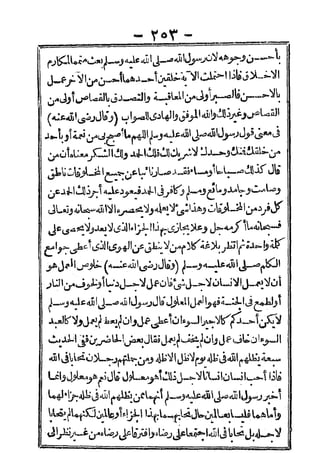 - ٢٥٣ -
بأحسن وجوهه لان رسول الله صلى الله عليه وسلم بعث متمما لمكارم
الاخلاق فاذا احتملت الآية خلقين أحدهما أحسن من الآخر عمل
بالاحسن فالصبر أولى من المعاقبة والتصدق بالقصاص أولى من
القصاص وغير ذلك والله الموفق والهادى للصواب (وقال رضى الله عنه)
فى معنى قول رسول الله صلى الله عليه وسلم اللهم ما أصبح بى من نعمة أو بأحد
من خلقك فمنك وحدك لا شريك لك فلك الحمد ولك الشكر معناه أن من
قال كذلك صباحا أو مساء فقد صار نائبا عن جميع المخلوقات ناطق
وصامت وجامد ومائع ومسلم وكافر فى الحمد فيعود عليه أجر ذلك الحمد عن
كل فرد من المخلوقات وهذا شئ لا يعلمه ولا يحصره الا الله سبحانه وتعالى
فسبحانه ما أكرمه جل وعلا يجازى بهذا الجزاء الذى لا يعد ولا يحصى على
كلمة واحدة ثم انظر بلاغة كلام من لا ينطق عن الهوى الذى أعطى جوامع
الكلم صلى الله عليه وسلم (وقال رضى الله عنه) خلوص العمل هو
أن لا يعمل الانسان لاجل شئ فان عمل لاجل دنيا أو لخوف من النار
أو لطمع فى الجنة فهو العمل المعلول قال رسول الله صلى الله عليه وسلم
لا يكن أحدكم كالاجير السوء ان أعطى عمل وان لم يعط لم يعمل ولا كالعبد
السوء ان خاف عمل وان لم يخف لم يعمل فقال بعض الحاضرين ففى الحديث
سبعة يظلهم الله فى ظله يوم لا ظل الا ظله ومن جملتهم رجلان تحابا فى الله
فاذا أحب انسان انسانا لاجل ذلك أهو معلول قال نعم هو معلول وانما
أخبر رسول الله صلى الله عليه وسلم انهما ممن يظلهم الله فى ظله جزاء لهما
وأما هما فليسا بعاملين حال تحابهما بهذا الجزاء أو عالمين لكنهما لم يتحابا
لاجله بل تحابا فى الله اجتمعا على رضاه وافترقا على رضاه من غير نظر الى